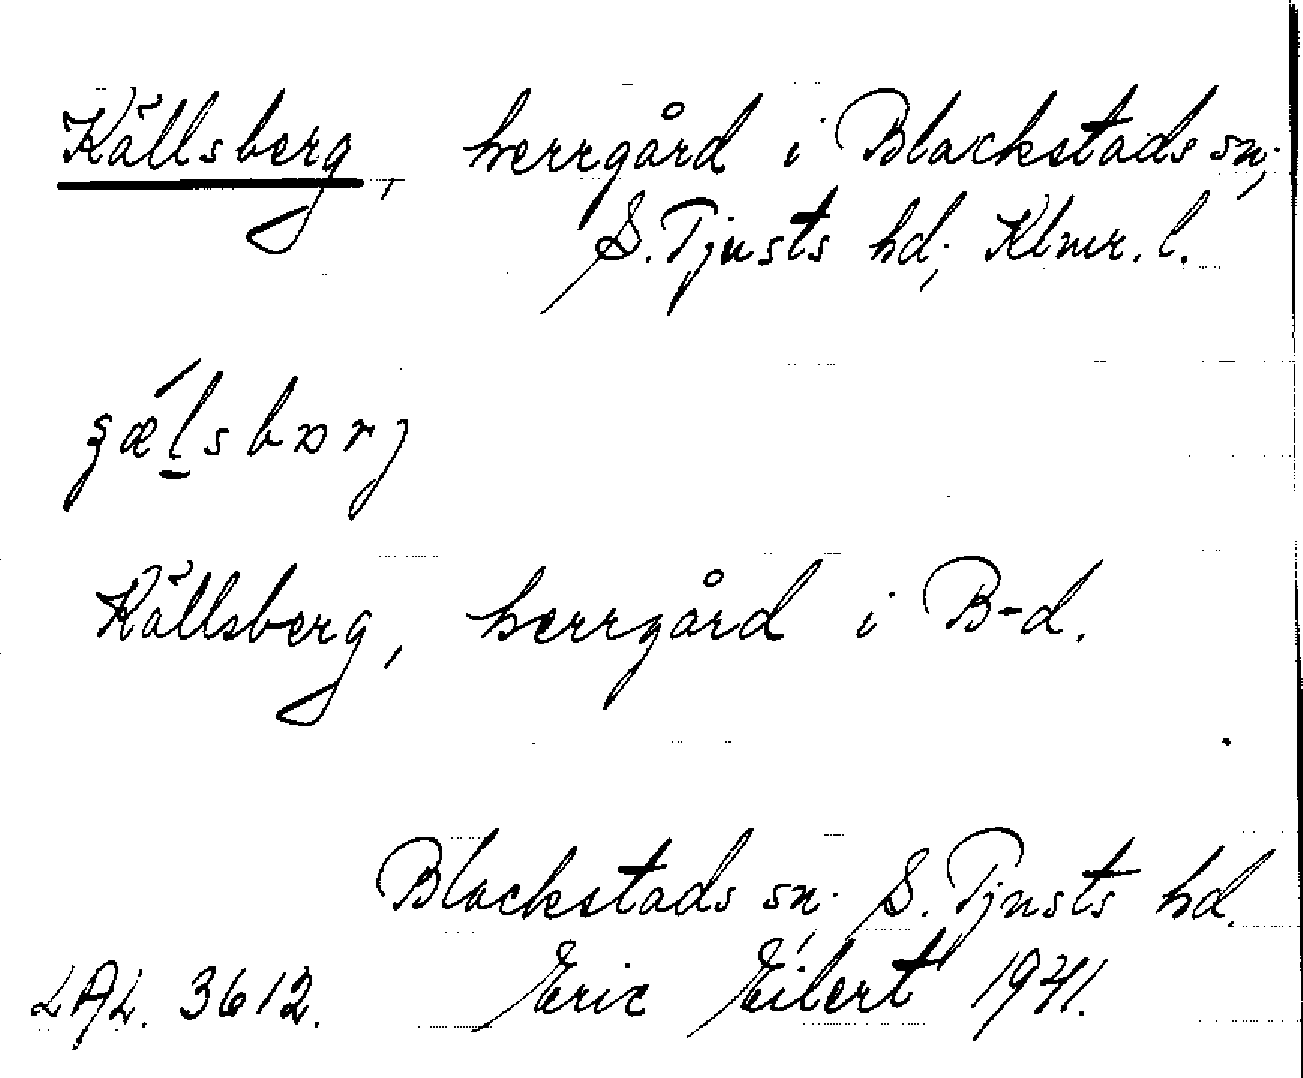 Källsberg, herrgård i Blackstads sn;
S. Tjusts hd; Klmr. l.
Källsberg, herrgård i B-d.
Blackstads sn; S. Tjusts hd.
LAL. 3612. Eric Eilert 1941.